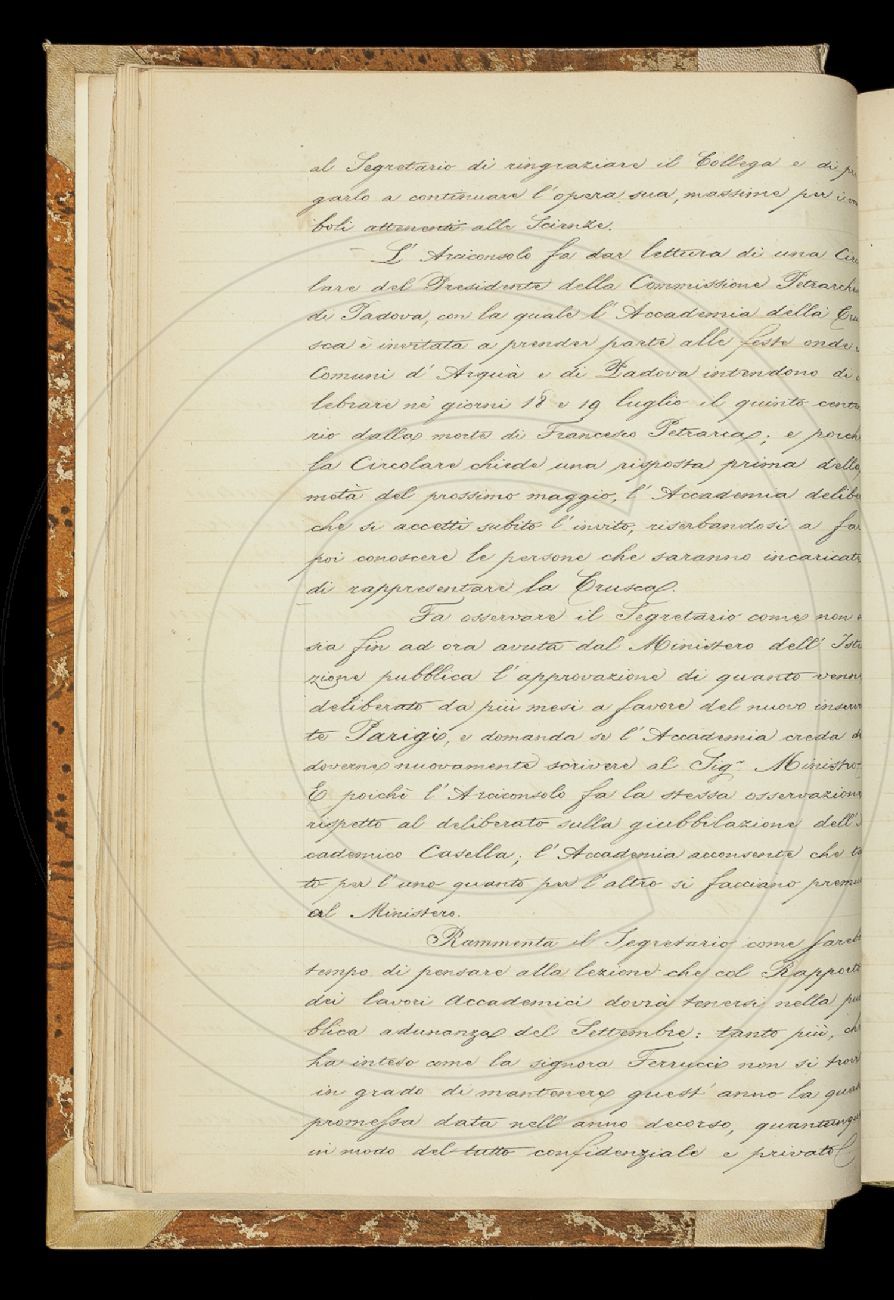 al Segretario di ringraziare il Collega e di pre
garlo a continuare l'opera sua, massime per i vo
boli attenenti alle Scienze.
L'Arciconsolo fa dar lettura di una Circ
lare del Presidente della Commissione Petrarche
di Padova, con la quale l'Accademia della Cru
sca è invitata a prender parte alle feste onde i
Comuni d'Arquà e di Padova intendono di c
lebrare ne' giorni 18 e 19 luglio il quinto cente
rio dalla morte di Francesco Petrarca; e poich
la Circolare chiede una risposta prima della
metà del prossimo maggio, l'Accademia delibe
che si accetti subito l'invito, riserbandosi a far
poi conoscere le persone che saranno incaricate
di rappresentare la Crusca.
Fa osservare il Segretario come non
sia fin ad ora avuta dal Ministero dell'Istr
zione pubblica l'approvazione di quanto venn
deliberato da più mesi a favore del nuovo inserv
te Parigi, e domanda se l'Accademia creda di
doverne nuovamente scrivere al Sigr Ministro.
E poichè l'Arciconsolo fa la stessa osservazione
rispetto al deliberato sulla giubbilazione dell'
cademico Casella; l'Accademia acconsente che ta
to per l'uno quanto per l'altro si facciano premu
al Ministero.
Rammenta il Segretario come sarebb
tempo di pensare alla lezione che col Rapporto
dei lavori Accademici dovrà tenersi nella pu
blica adunanza del Settembre: tanto più, ch
ha inteso come la signora Ferrucci non si trovi
in grado di mantenere quest'anno la quasi
promessa data nell'anno decorso, quantunqu
in modo del tutto confidenziale e privato